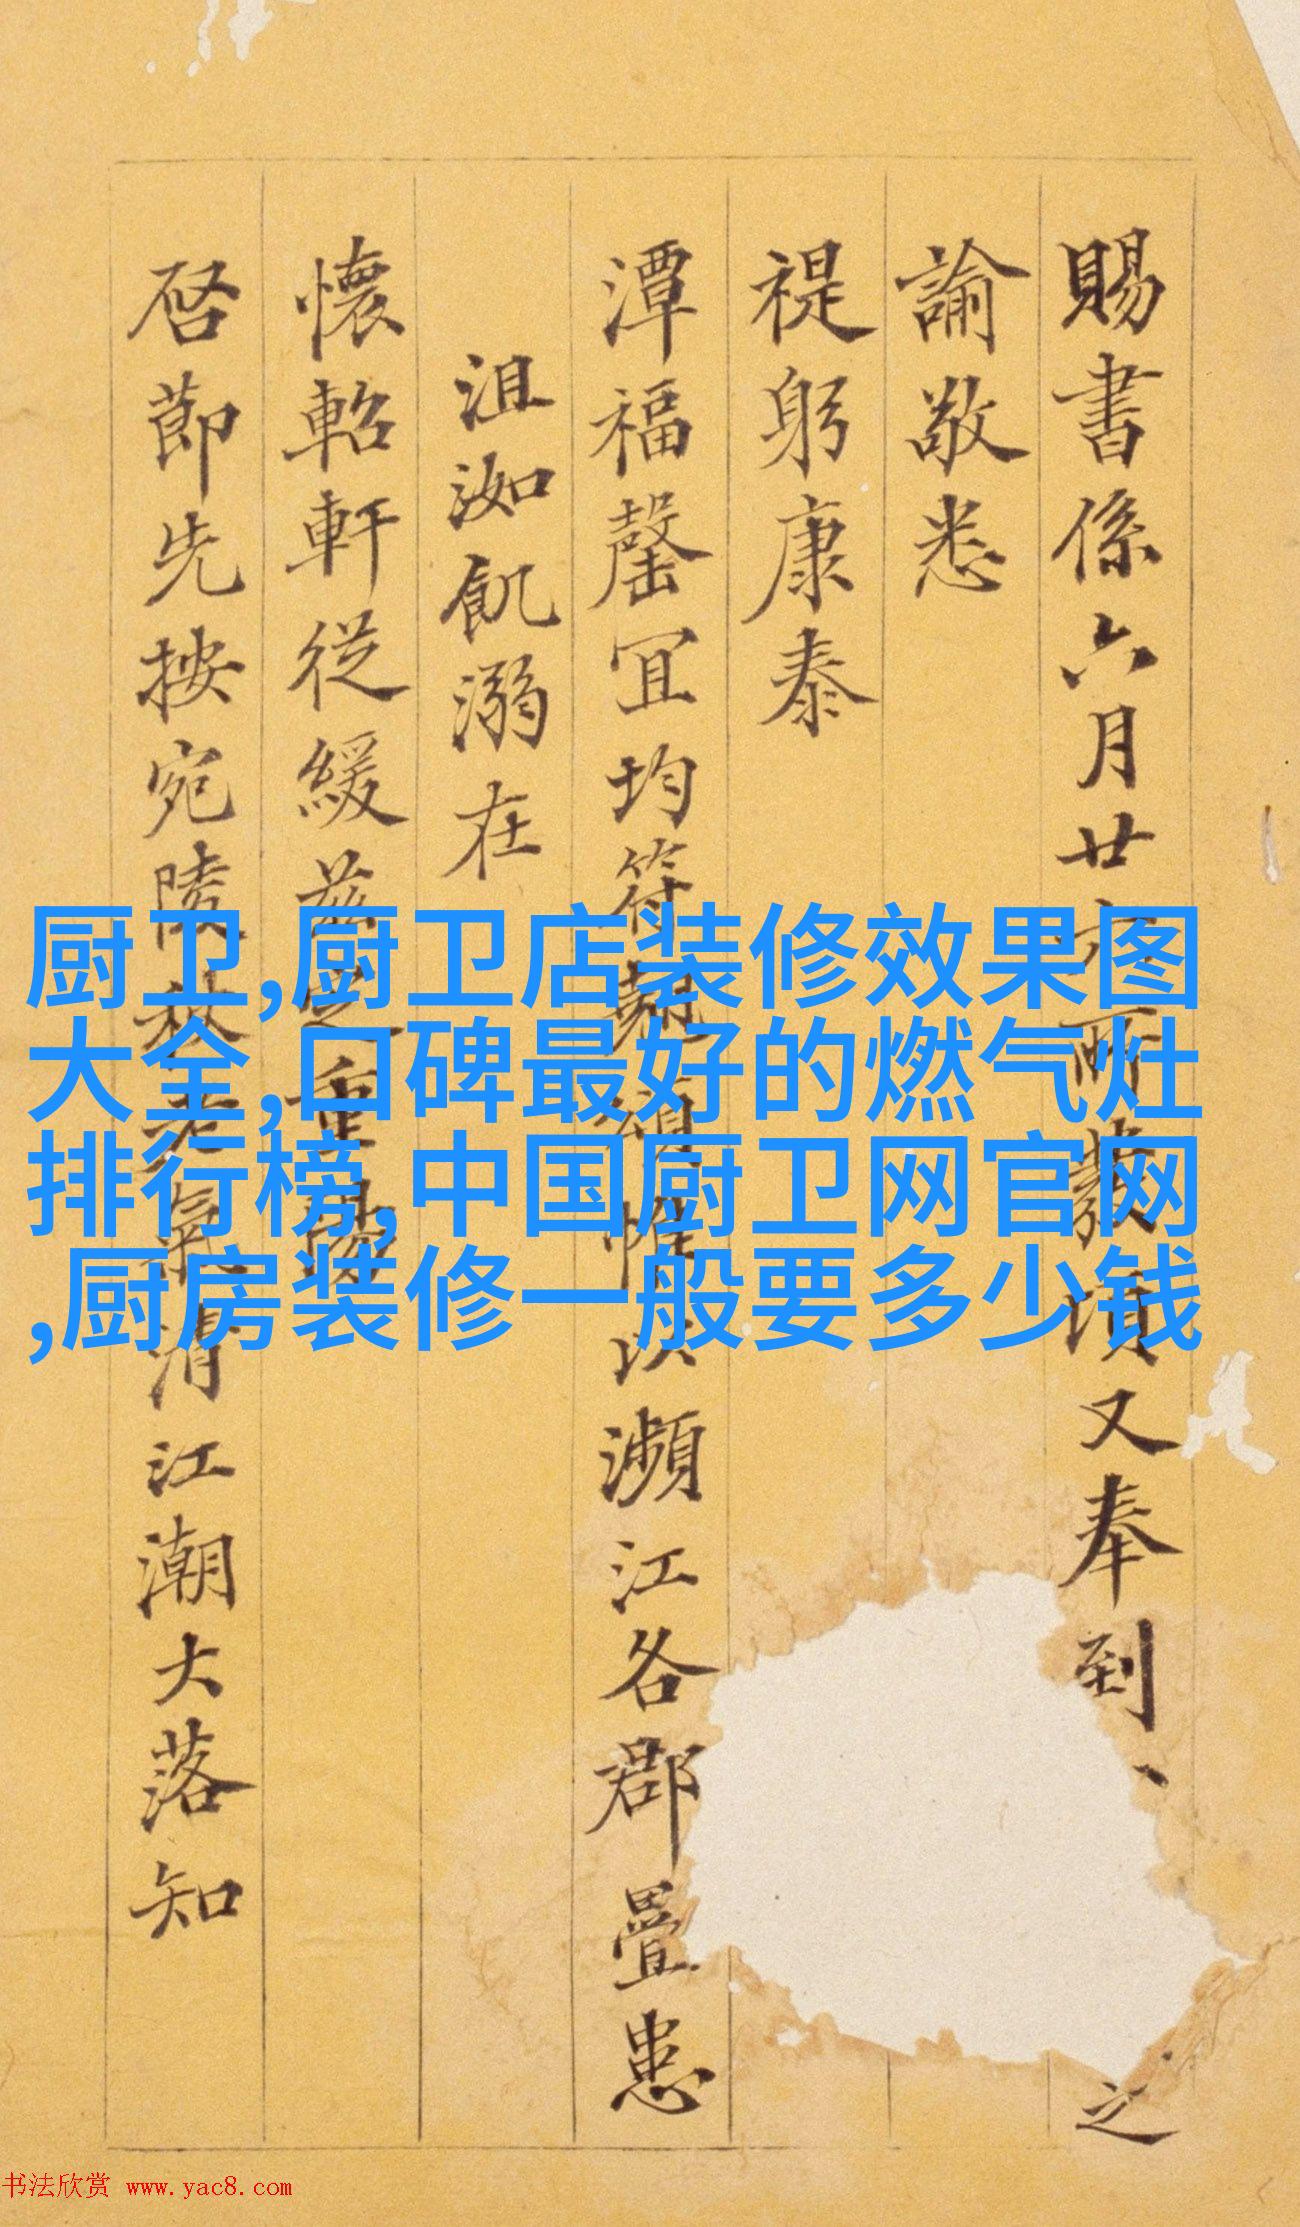 賜書係六月廿六所發頃又奉到、之
諭敬悉
禔躬康泰
潭福罄冝均符頌惟以瀕江各郡疊患
沮洳飢溺在
懷軺軒従緩茲之重
启莭先按宛陵秋老氣清江潮大落知
厨卫,厨卫店装修效果图
大全,口碑最好的燃气灶
排行榜,中国厨卫网官网
,厨房装修一般要多少钱
书法欣赏 www.yac8.com